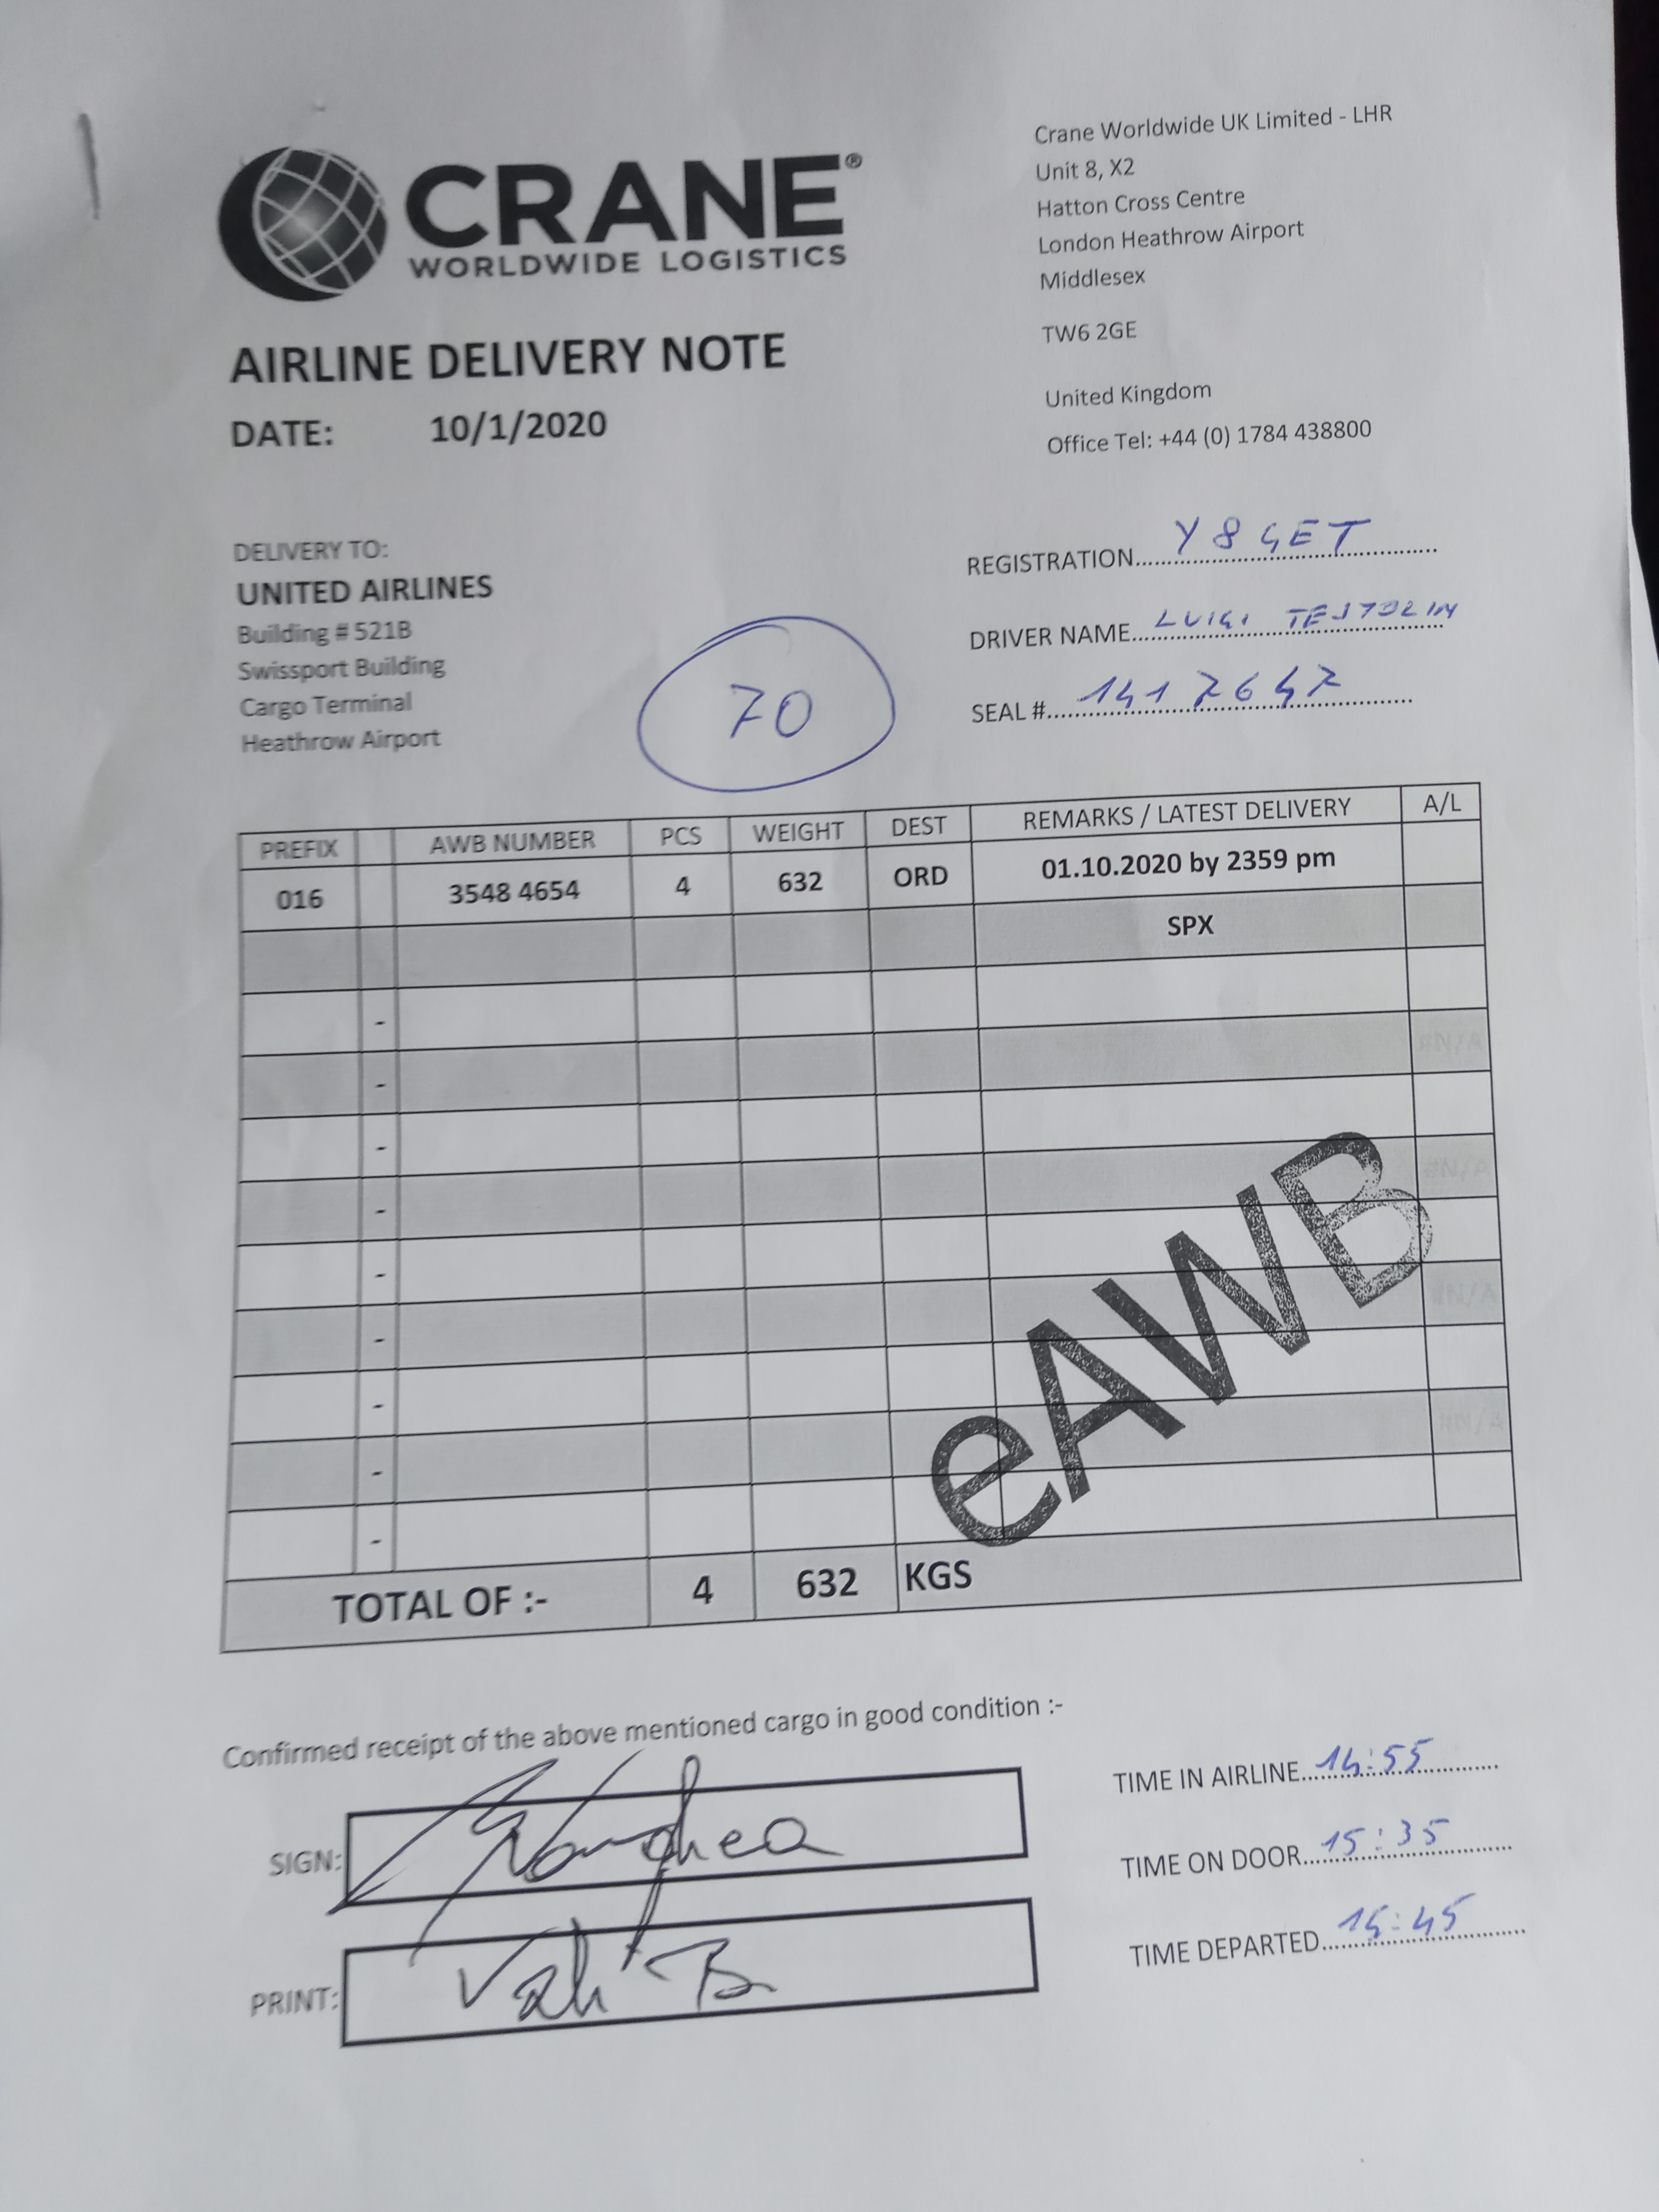 CRANE®
WORLDWIDE LOGISTICS
Crane Worldwide UK Limited - LHR
Unit 8, X2
Hatton Cross Centre
London Heathrow Airport
Middlesex
TW6 2GE
United Kingdom
Office Tel: +44 (0) 1784 438800
AIRLINE DELIVERY NOTE
DATE: 10/1/2020
DELIVERY TO:
UNITED AIRLINES
Building # 521B
Swissport Building
Cargo Terminal
Heathrow Airport
70
REGISTRATION Y8GET
DRIVER NAME LUIGI TESTOLIN
SEAL # 1417647
PREFIX AWB NUMBER PCS WEIGHT DEST REMARKS / LATEST DELIVERY A/L
016 3548 4654 4 632 ORD 01.10.2020 by 2359 pm
SPX
-
- #N/A
-
- #N/A
-
- #N/A
-
- #N/A
-
eAWB
TOTAL OF :- 4 632 KGS
Confirmed receipt of the above mentioned cargo in good condition :-
SIGN:
PRINT:
TIME IN AIRLINE 14:55
TIME ON DOOR 15:35
TIME DEPARTED 15:45